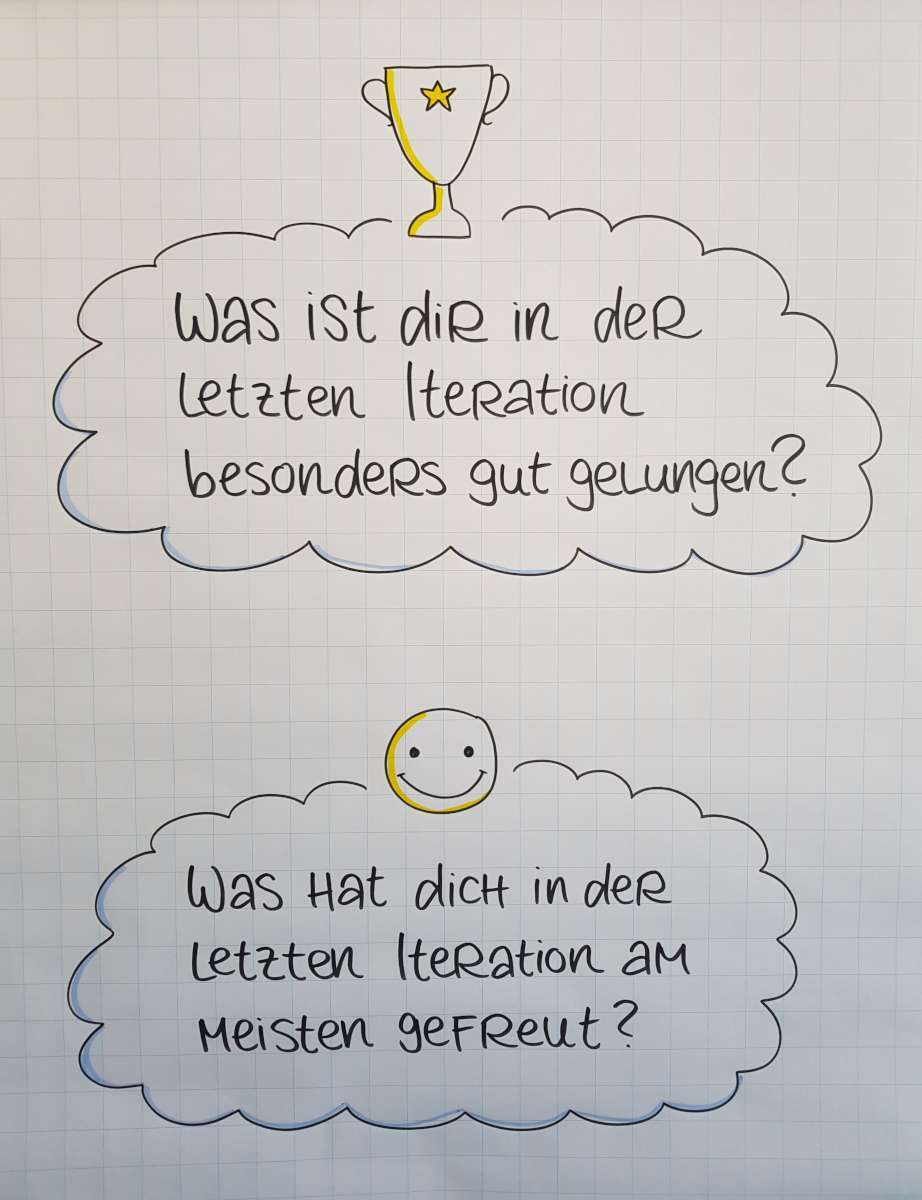 Was ist dir in der
letzten Iteration
besonders gut gelungen?
Was hat dich in der
letzten Iteration am
meisten gefreut?